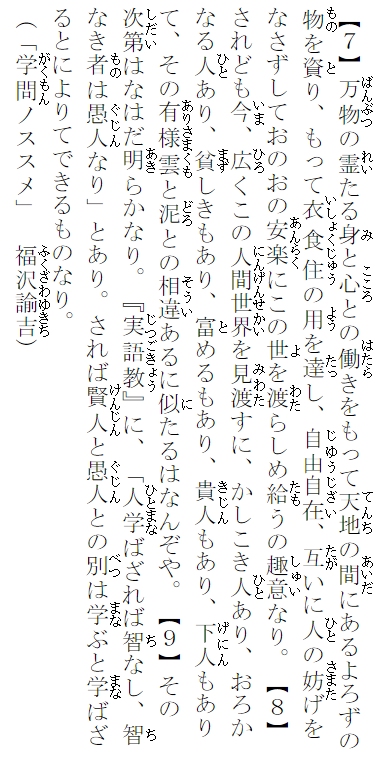 【7】万物の霊たる身と心との働きをもって天地の間にあるよろずの
物を資り、もって衣食住の用を達し、自由自在、互いに人の妨げを
なさずしておのおの安楽にこの世を渡らしめ給うの趣意なり。【8】
されども今、広くこの人間世界を見渡すに、かしこき人あり、おろか
なる人あり、貧しきもあり、富めるもあり、貴人もあり、下人もあり
て、その有様雲と泥との相違あるに似たるはなんぞや。【9】その
次第はなはだ明らかなり。『実語教』に、「人学ばざれば智なし、智
なき者は愚人なり」とあり。されば賢人と愚人との別は学ぶと学ばざ
るとによりてできるものなり。
(「学問ノススメ」 福沢諭吉)